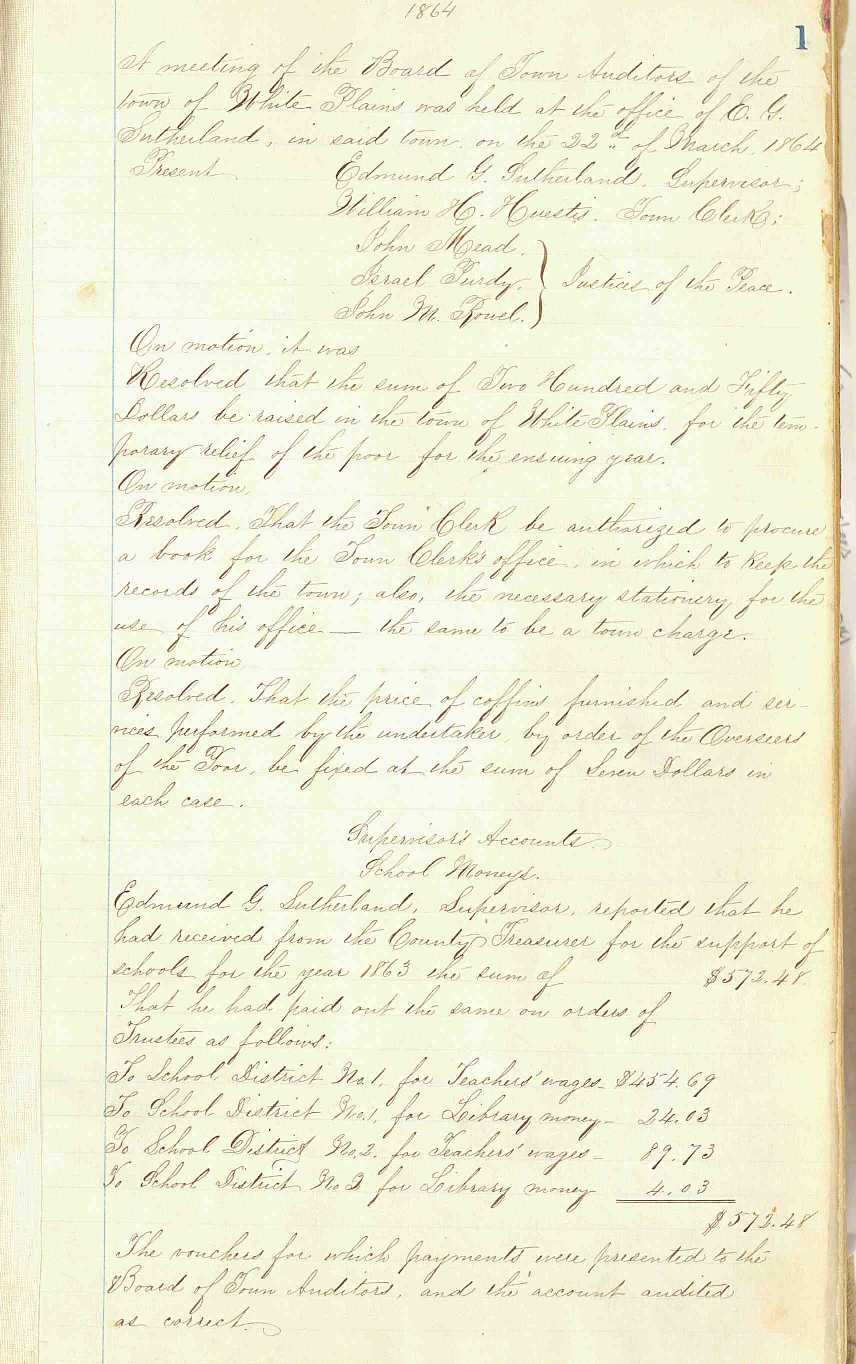 1864
1
A meeting of the Board of Town Auditors of the
town of White Plains was held at the office of E. G.
Sutherland, in said town, on the 22nd of March, 1864
Present Edmund G. Sutherland, Supervisor;
William H. Huestis, Town Clerk;
John Mead,
Israel Purdy, } Justices of the Peace.
John M. Rowel.
On motion, it was
Resolved that the sum of Two Hundred and Fifty
Dollars be raised in the town of White Plains, for the tem-
porary relief of the poor for the ensuing year.
On motion,
Resolved, That the Town Clerk be authorized to procure
a book for the Town Clerk's office, in which to keep the
records of the town; also, the necessary stationery for the
use of his office — the same to be a town charge.
On motion
Resolved, That the price of coffins furnished and ser-
vices performed by the undertaker, by order of the Overseers
of the Poor, be fixed at the sum of Seven Dollars in
each case.
Supervisor's Accounts.
School Money's.
Edmund G. Sutherland, Supervisor, reported that he
had received from the County Treasurer for the support of
schools for the year 1863 the sum of $572.48
That he had paid out the same on orders of
Trustees as follows:
To School District No.1, for Teachers' wages - $454.69
To School District No.1, for Library money - 24.03
To School District No.2. for Teachers' wages - 89.73
To School District No 2 for Library money 4.03
$572.48
The vouchers for which payments were presented to the
Board of Town Auditors, and the account audited
as correct.